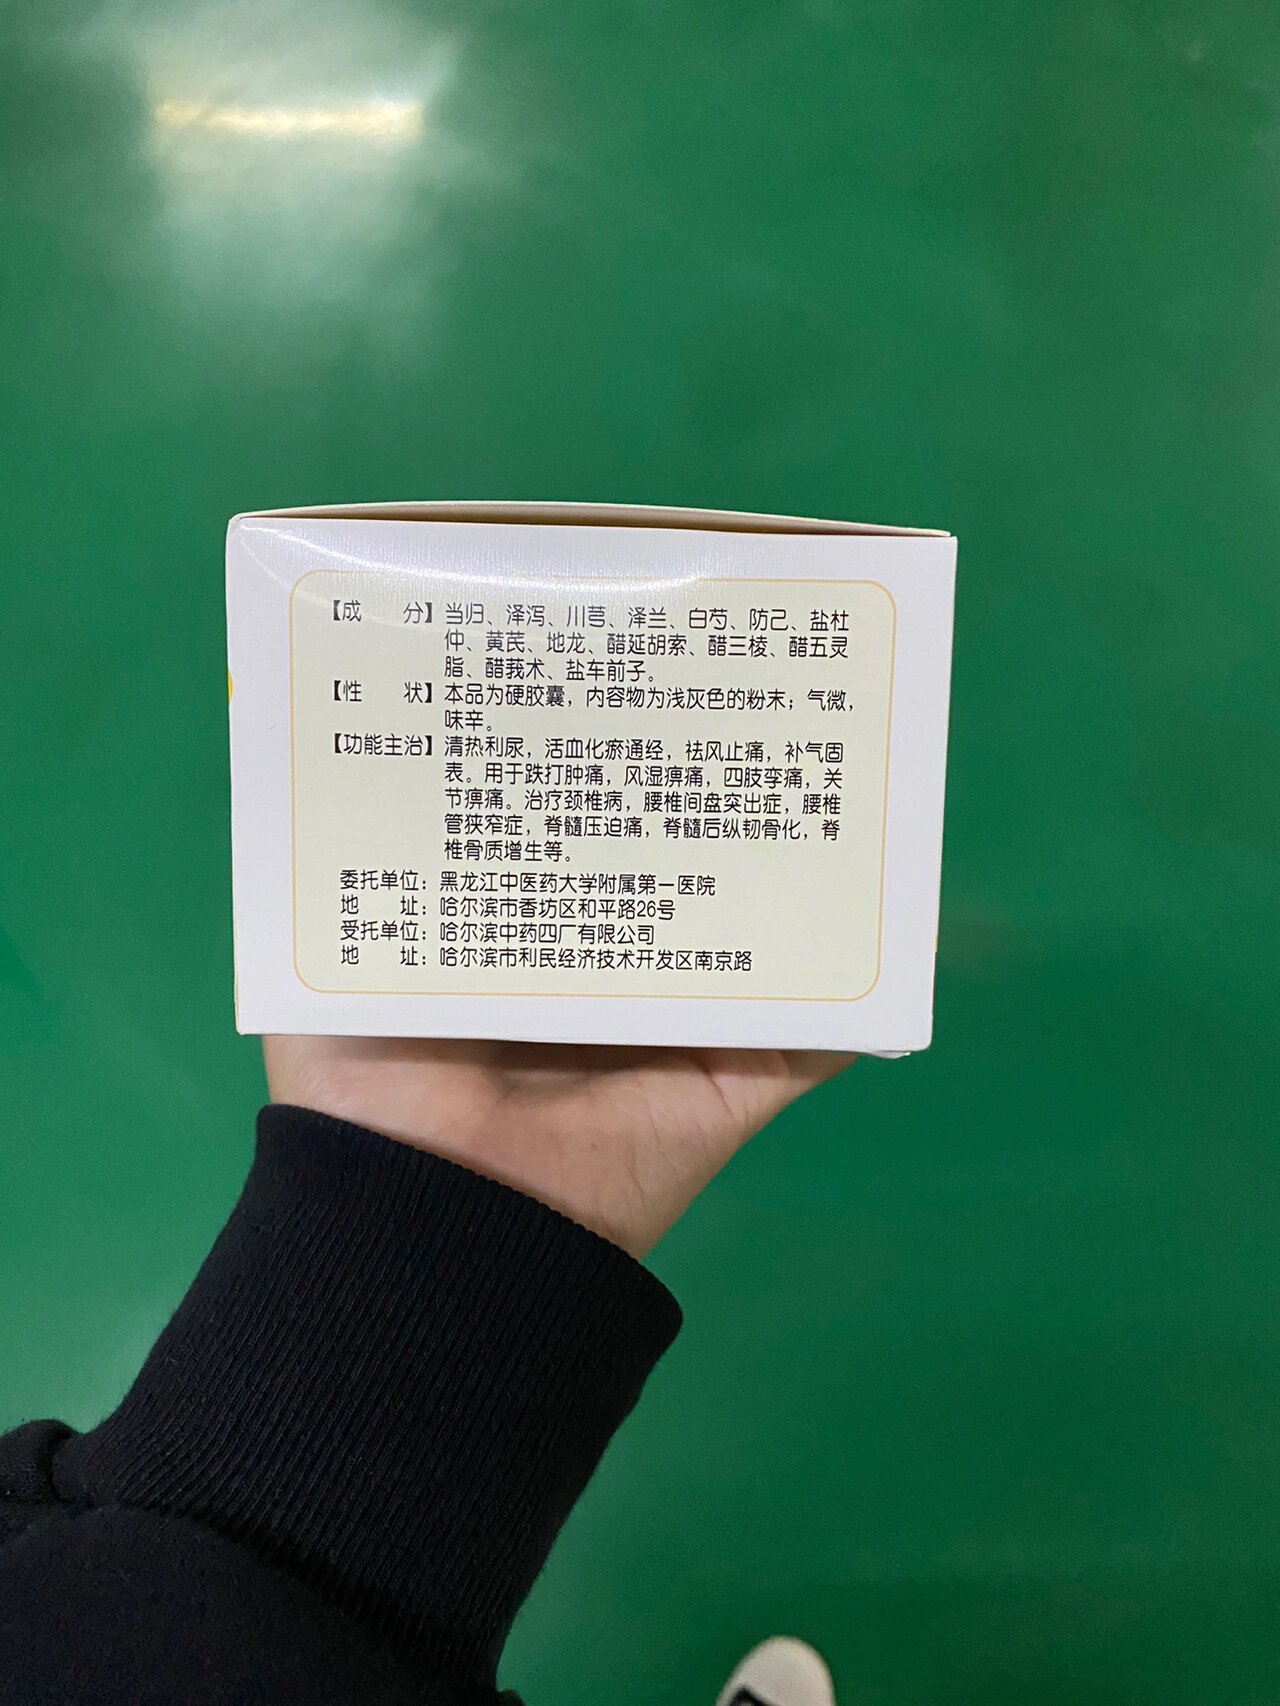 【成　　分】当归、泽泻、川芎、泽兰、白芍、防己、盐杜
仲、黄芪、地龙、醋延胡索、醋三棱、醋五灵
脂、醋莪术、盐车前子。
【性　　状】本品为硬胶囊，内容物为浅灰色的粉末；气微，
味辛。
【功能主治】清热利尿，活血化瘀通经，祛风止痛，补气固
表。用于跌打肿痛，风湿痹痛，四肢挛痛，关
节痹痛。治疗颈椎病，腰椎间盘突出症，腰椎
管狭窄症，脊髓压迫痛，脊髓后纵韧骨化，脊
椎骨质增生等。
委托单位：黑龙江中医药大学附属第一医院
地　　址：哈尔滨市香坊区和平路26号
受托单位：哈尔滨中药四厂有限公司
地　　址：哈尔滨市利民经济技术开发区南京路